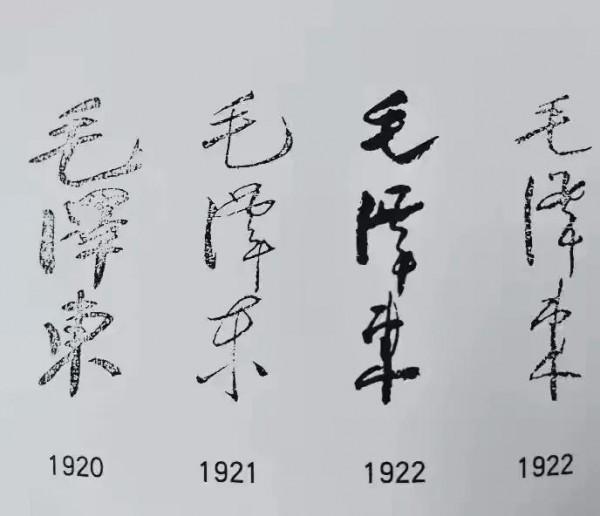 毛澤東
毛澤东
毛澤東
毛澤東
1920
1921
1922
1922